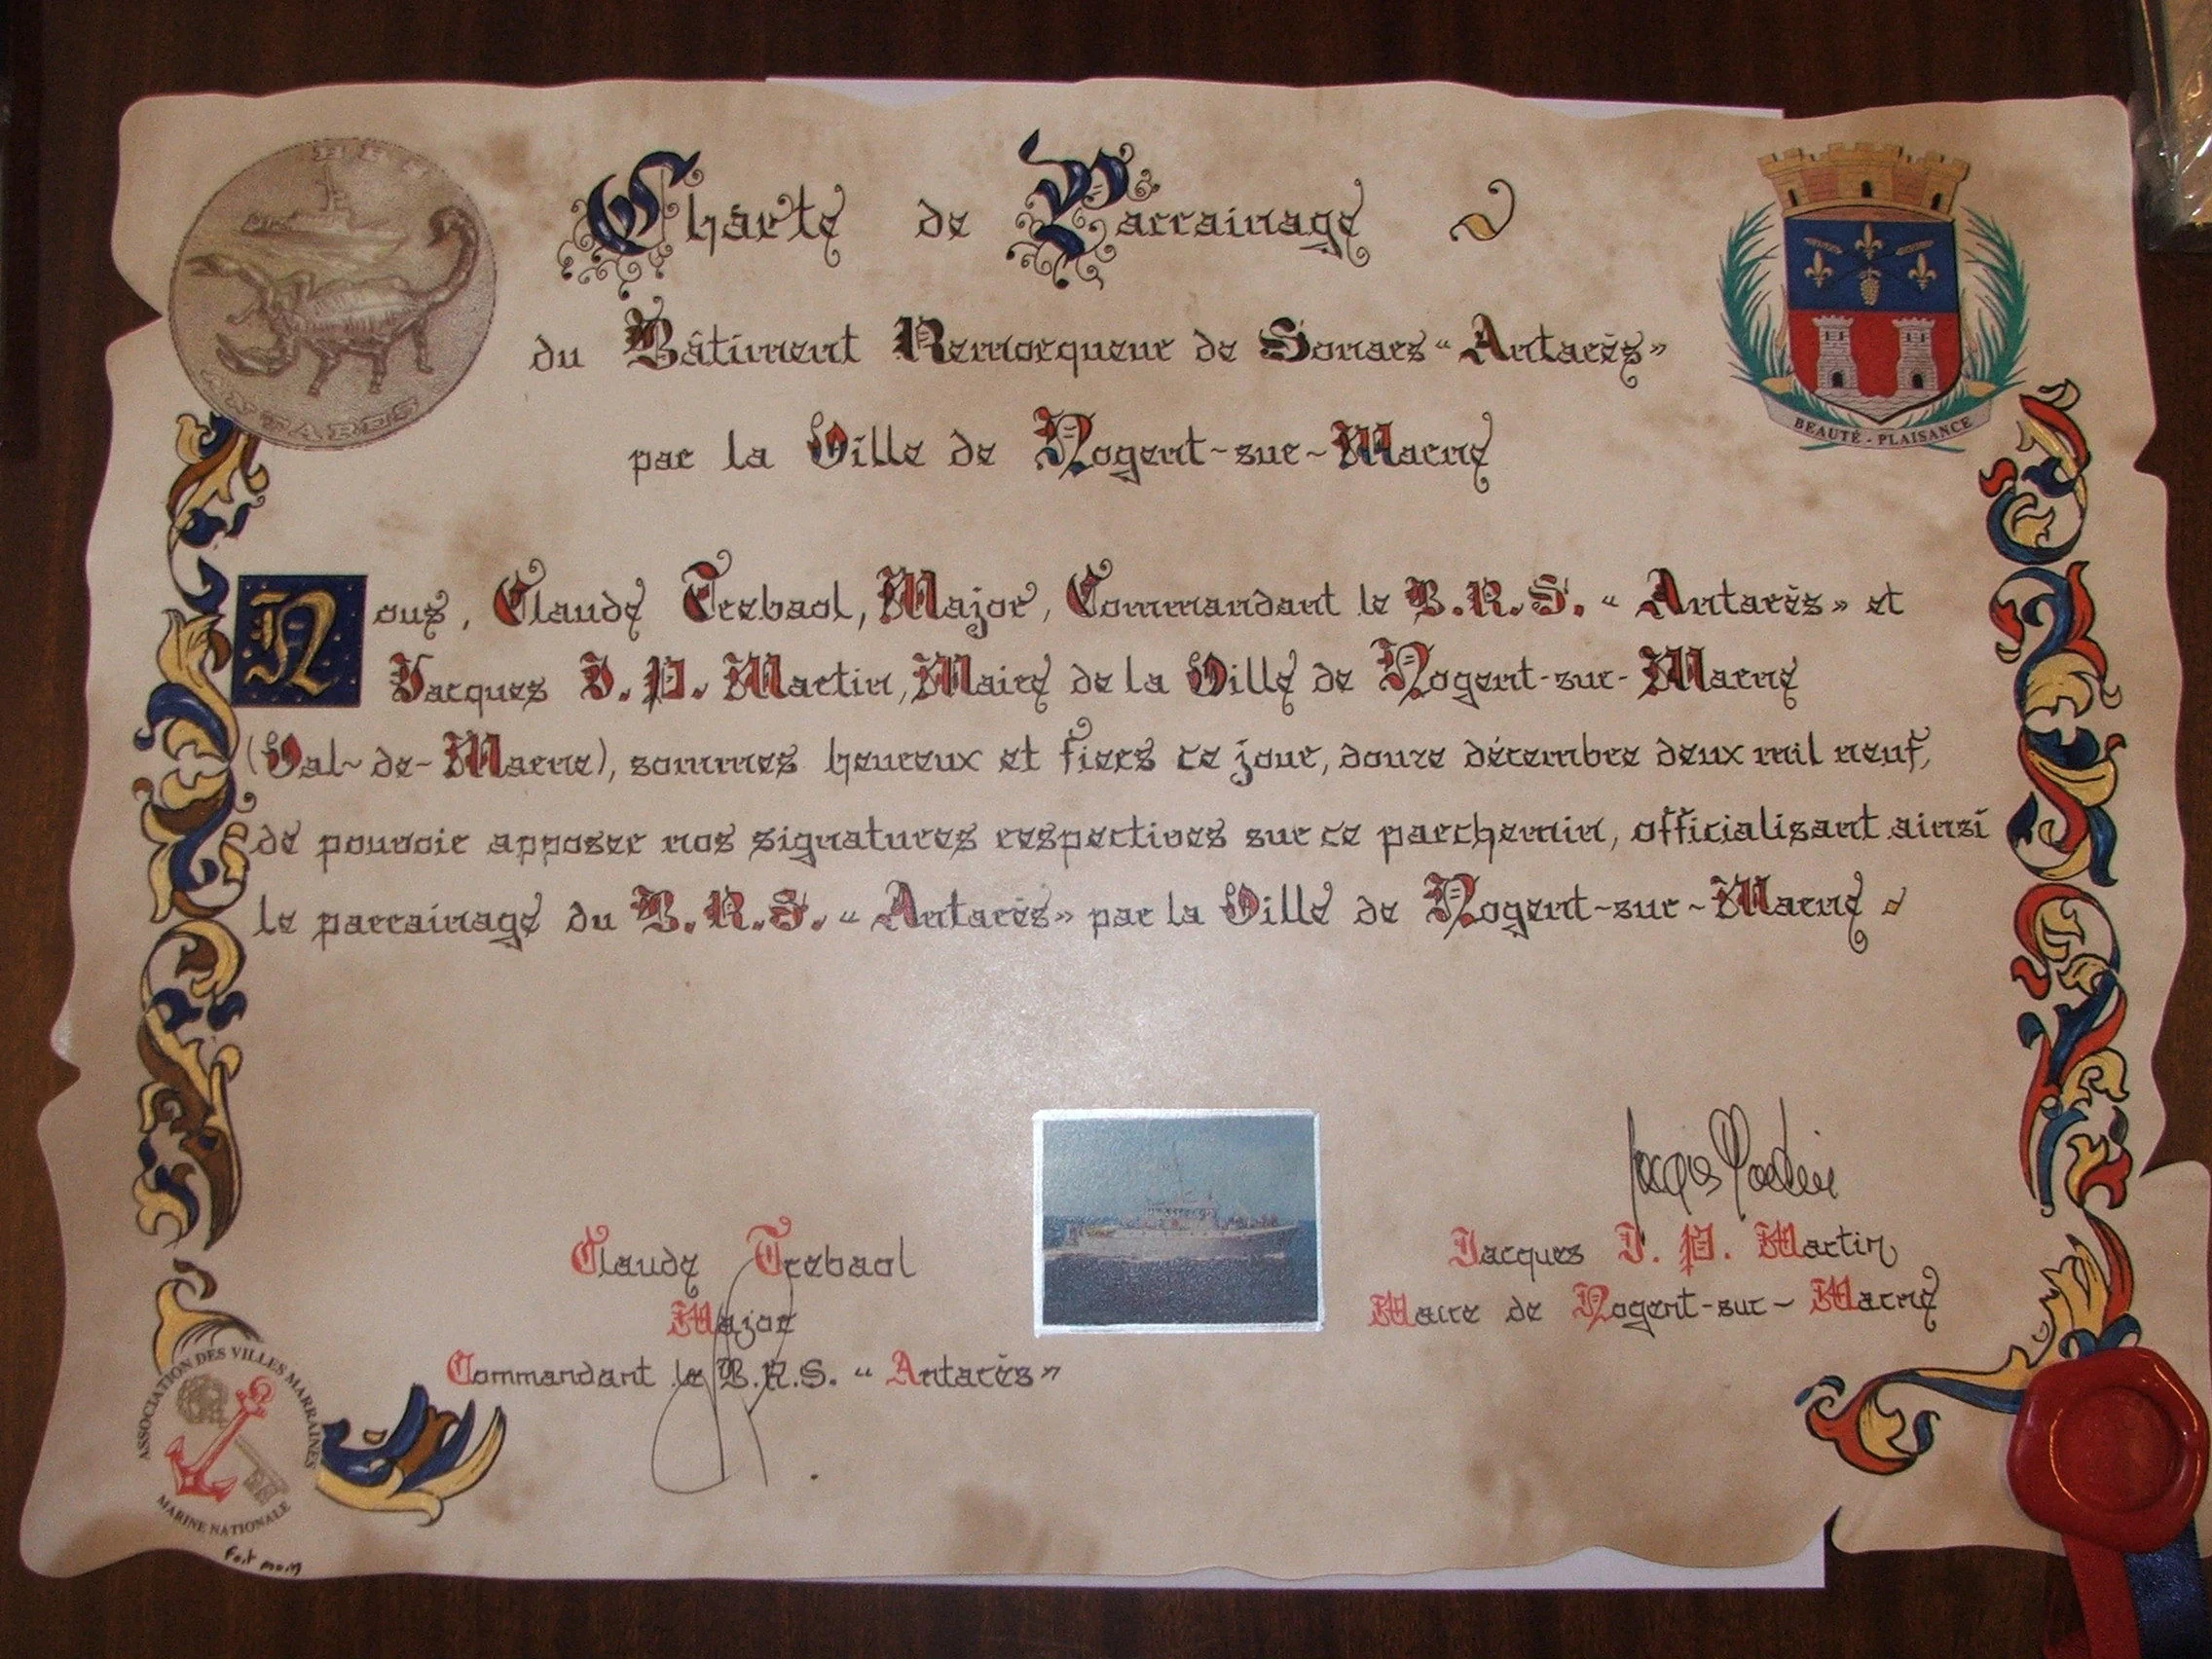 Charte de Parrainage
du Bâtiment Remorqueur de Sonars "Antarès"
par la Ville de Nogent-sur-Marne
BEAUTÉ - PLAISANCE
ANTARES
Nous, Claude Trebaol, Major, Commandant le B.R.S. "Antarès" et
Jacques J. P. Martin, Maire de la Ville de Nogent-sur-Marne
(Val-de-Marne), sommes heureux et fiers ce jour, douze décembre deux mil neuf,
de pouvoir apposer nos signatures respectives sur ce parchemin, officialisant ainsi
le parrainage du B.R.S. "Antarès" par la Ville de Nogent-sur-Marne
Jacques Martin
Claude Trebaol
Major
Commandant le B.R.S. "Antarès"
Jacques J. P. Martin
Maire de Nogent-sur-Marne
ASSOCIATION DES VILLES MARRAINES
MARINE NATIONALE